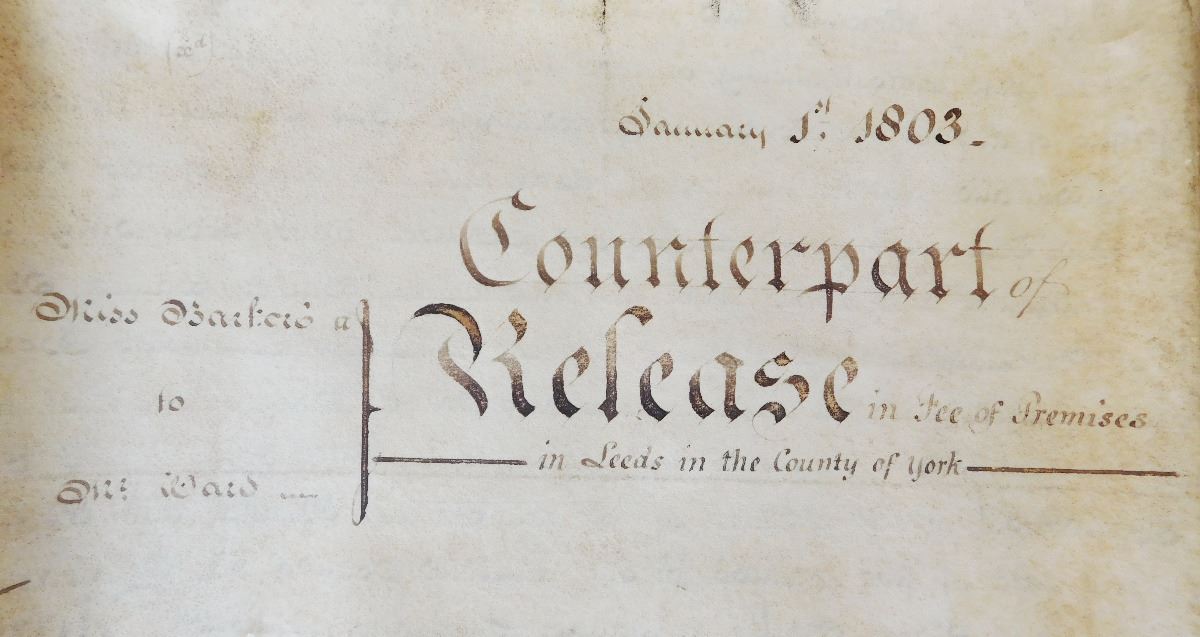 January 1st. 1803.
Counterpart of
Release in Fee of Premises
in Leeds in the County of York
Miss Barkers
to
Mr. Ward